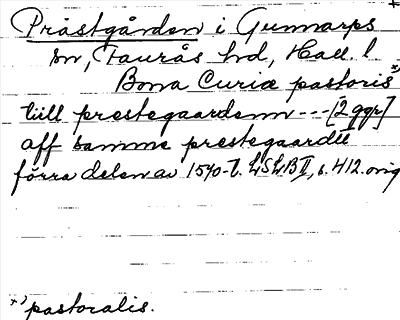 +
Prästgården i Gunnarps
sn, Faurås hd, Hall. l.
Bona Curiæ pastoris *)
tiill prestegaardenn --- [2 ggr]
aff samme prestegaardtt
förra delen av 1540-t. LSLB II, s. 412. orig
*) pastoralis.